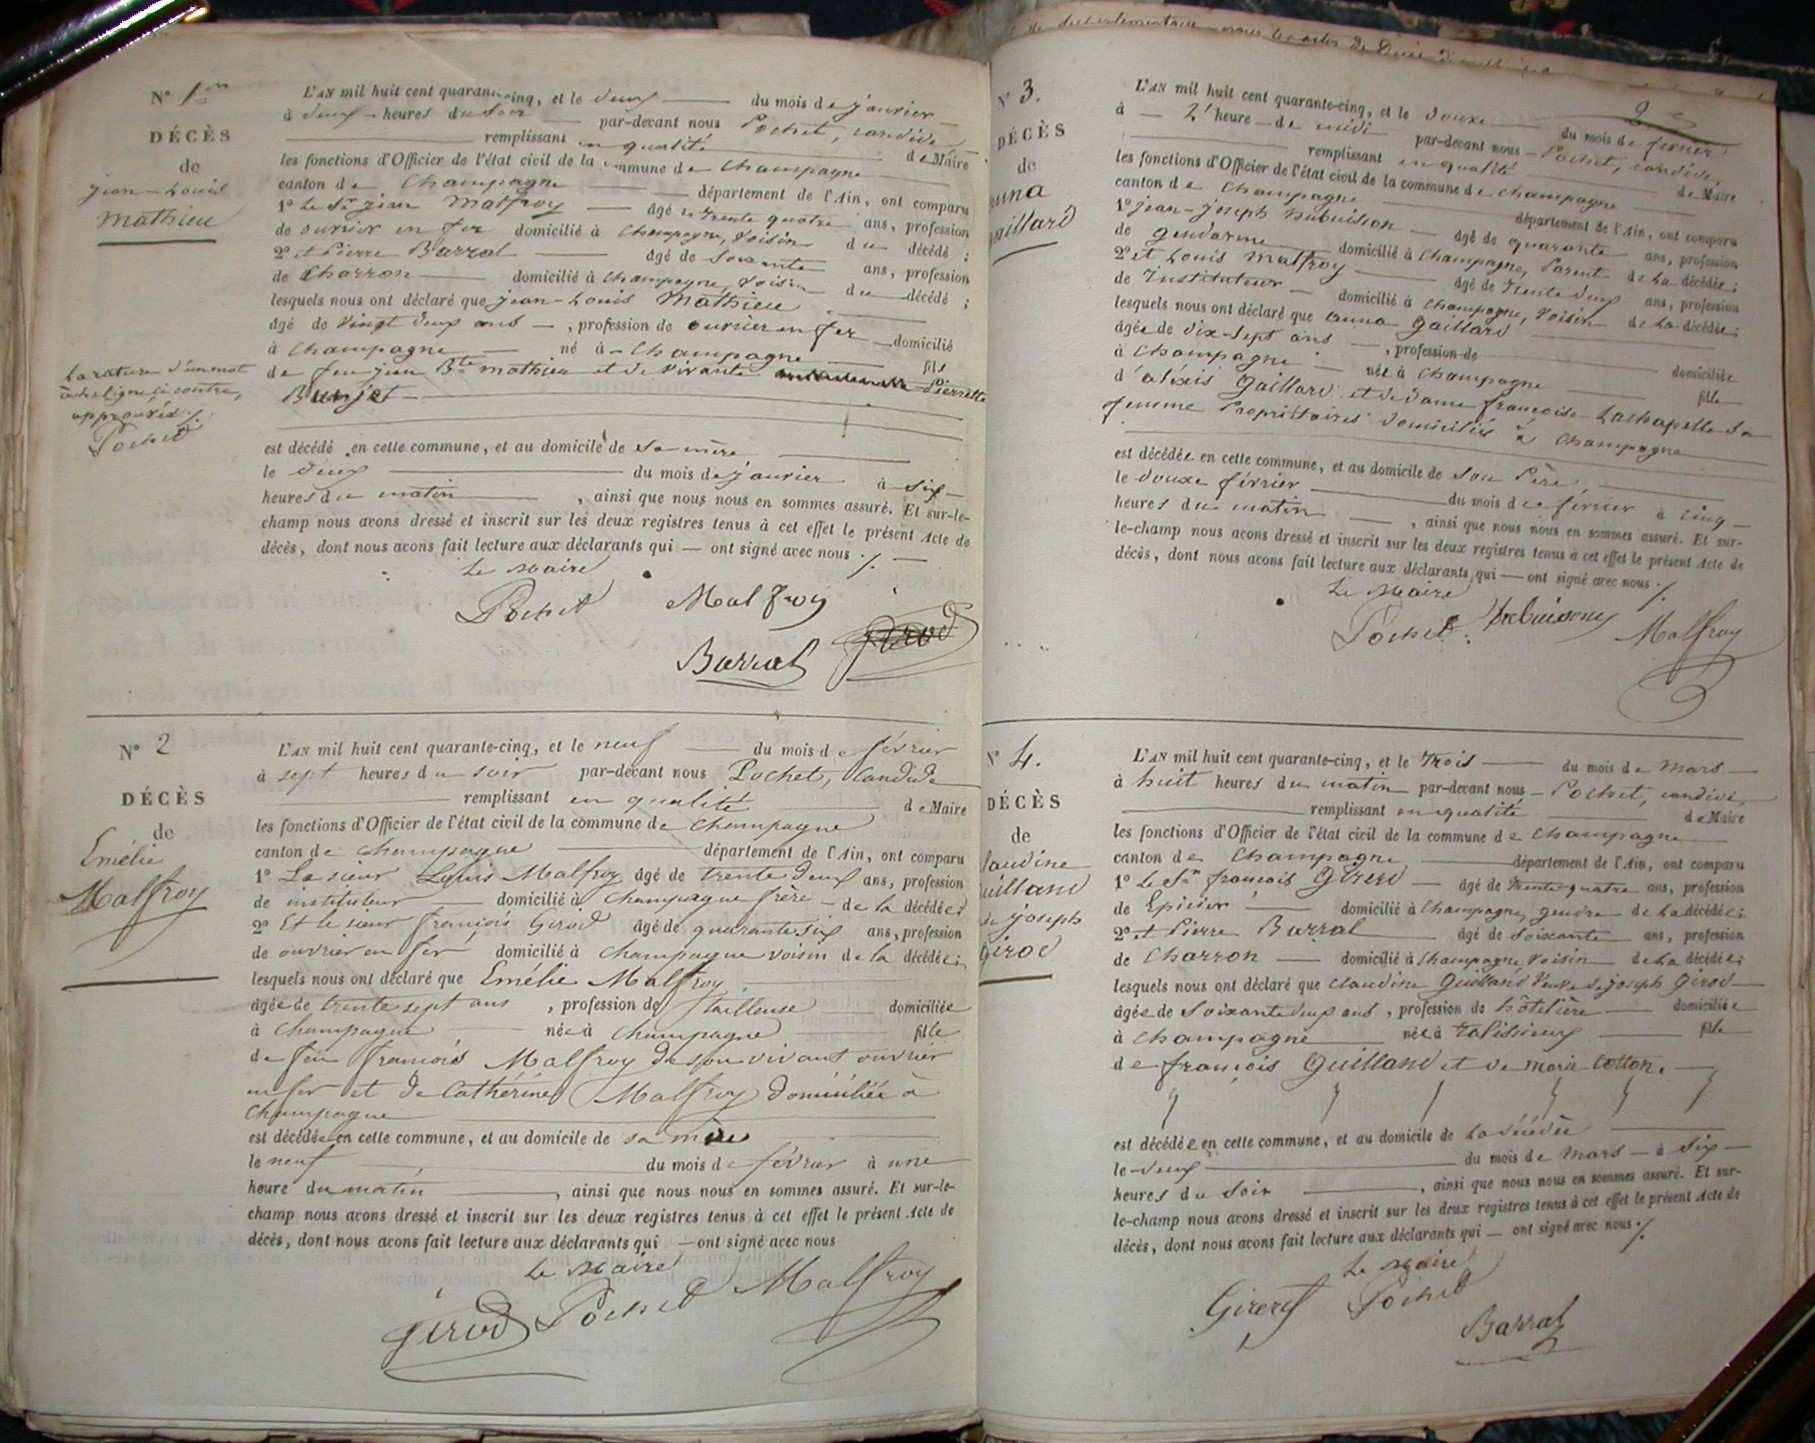 N° 1er
DÉCÈS
de
jean-Louis
Mathieu
L'AN mil huit cent quarante-cinq, et le deux du mois de janvier
à deux heures du soir par-devant nous Pochet, candide
remplissant en qualité de Maire
les fonctions d'Officier de l'état civil de la commune de champagne
canton de Champagne département de l'Ain, ont comparu
1° Le Sr jean Malfroy âgé de trente quatre ans, profession
de ouvrier en fer domicilié à Champagne, voisin du décédé ;
2° et Pierre Barral âgé de soixante ans, profession
de Charron domicilié à champagne, voisin du décédé ;
lesquels nous ont déclaré que jean-Louis Mathieu
âgé de vingt deux ans , profession de ouvrier en fer domicilié
à champagne né à champagne fils
de feu jean Bte mathieu et de vivante Pierrette
Bunjot
La rature d'un mot
à la ligne ci contre,
approuvée ./.
Pochet
est décédé en cette commune, et au domicile de sa mère
le deux du mois de janvier à six
heures du matin , ainsi que nous nous en sommes assuré. Et sur-le-
champ nous avons dressé et inscrit sur les deux registres tenus à cet effet le présent Acte de
décès, dont nous avons fait lecture aux déclarants qui — ont signé avec nous ./.
Le Maire
Pochet Malfroy
Barral Girod
N° 2
DÉCÈS
de
Emélie
Malfroy
L'AN mil huit cent quarante-cinq, et le neuf du mois de février
à sept heures du soir par-devant nous Pochet, Candide
remplissant en qualité de Maire
les fonctions d'Officier de l'état civil de la commune de champagne
canton de champagne département de l'Ain, ont comparu
1° Le sieur Louis Malfroy âgé de trente deux ans, profession
de instituteur domicilié à champagne frère de la décédée ;
2° Et le sieur françois Girod âgé de quarante six ans, profession
de ouvrier en fer domicilié à champagne voisin de la décédée ;
lesquels nous ont déclaré que Emélie Malfroy
âgée de trente sept ans , profession de tailleuse domiciliée
à champagne née à champagne fille
de feu françois Malfroy de son vivant ouvrier
en fer et de Cathérine Malfroy domiciliée à
champagne
est décédée en cette commune, et au domicile de sa mère
le neuf du mois de février à une
heure du matin , ainsi que nous nous en sommes assuré. Et sur-le-
champ nous avons dressé et inscrit sur les deux registres tenus à cet effet le présent Acte de
décès, dont nous avons fait lecture aux déclarants qui — ont signé avec nous
Le Maire
Girod Pochet Malfroy
N° 3.
DÉCÈS
de
anna
gaillard
2
L'AN mil huit cent quarante-cinq, et le douze du mois de février
à 2 heure de midi par-devant nous Pochet, candide,
remplissant en qualité de Maire
les fonctions d'Officier de l'état civil de la commune de champagne
canton de champagne département de l'Ain, ont comparu
1° jean-joseph Dubuisson âgé de quarante ans, profession
de gendarme domicilié à champagne, Parent de la décédée ;
2° et Louis Malfroy âgé de trente deux ans, profession
de Instituteur domicilié à champagne, voisin de la décédée ;
lesquels nous ont déclaré que anna gaillard
âgée de dix-sept ans , profession de domiciliée
à champagne née à champagne fille
d'aléxis gaillard et de dame françoise Lachapelle sa
femme Propriétaires domiciliés à champagne
est décédée en cette commune, et au domicile de son Père
le douze février du mois de février à cinq
heures du matin , ainsi que nous nous en sommes assuré. Et sur-
le-champ nous avons dressé et inscrit sur les deux registres tenus à cet effet le présent Acte de
décès, dont nous avons fait lecture aux déclarants qui — ont signé avec nous ./.
Le Maire
Pochet Malfroy
N° 4.
DÉCÈS
de
laudine
uilland
de joseph
girod
L'AN mil huit cent quarante-cinq, et le trois du mois de mars
à huit heures du matin par-devant nous Pochet, candide,
remplissant en qualité de Maire
les fonctions d'Officier de l'état civil de la commune de champagne
canton de champagne département de l'Ain, ont comparu
1° Le Sr françois Girerd âgé de trente-quatre ans, profession
de Epicier domicilié à champagne, gendre de la décédée ;
2° et Pierre Barral âgé de soixante ans, profession
de Charron domicilié à champagne, voisin de la décédée ;
lesquels nous ont déclaré que claudine guilland veuve de joseph girod
âgée de soixante deux ans , profession de hôtelière domiciliée
à champagne née à talissieux fille
de françois guilland et de marie Cotton.
est décédée en cette commune, et au domicile de La décédée
le deux du mois de mars à six
heures du soir , ainsi que nous nous en sommes assuré. Et sur-
le-champ nous avons dressé et inscrit sur les deux registres tenus à cet effet le présent Acte de
décès, dont nous avons fait lecture aux déclarants qui — ont signé avec nous ./.
Le Maire
Girerd Pochet
Barral